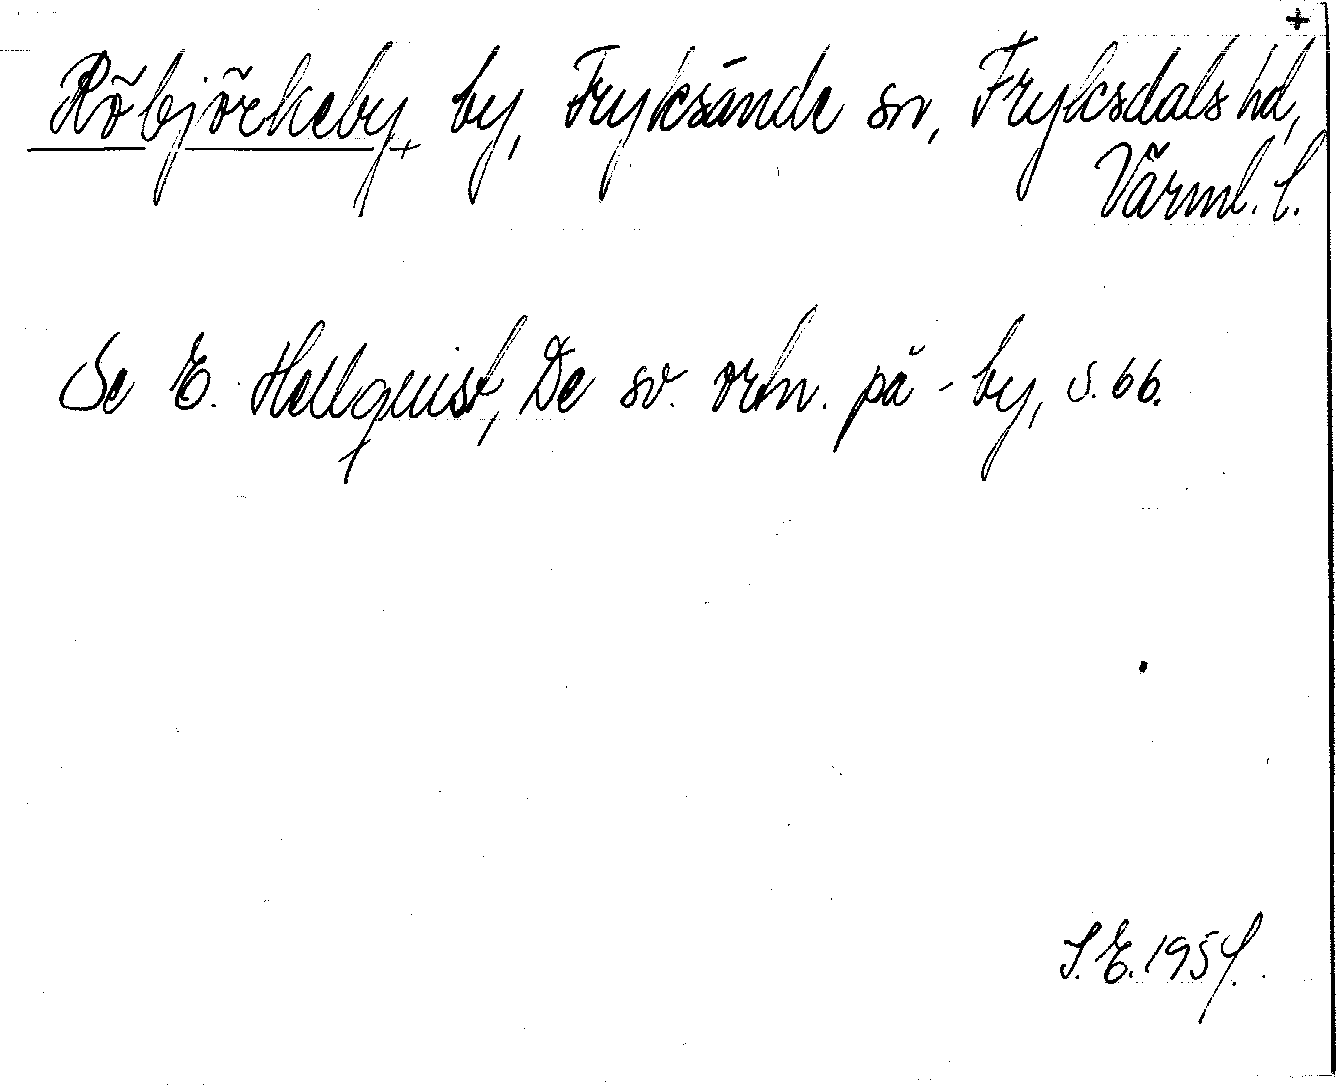 +
Röbjörkeby, by, Fryksände sn, Fryksdals hd,
Värml. l.
Se E. Hellquist, De sv. ortn. på -by, s. 66.
S. E. 1954.